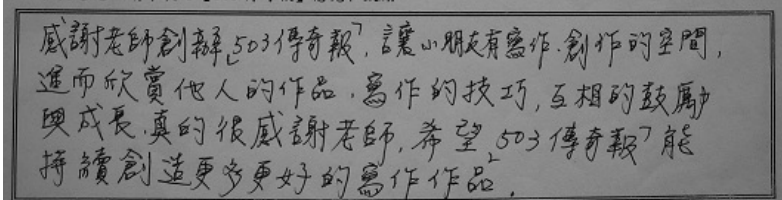 感謝老師創辦「503傳奇報」,讓小朋友有寫作.創作的空間,
進而欣賞他人的作品.寫作的技巧,互相的鼓勵
與成長.真的很感謝老師,希望「503傳奇報」能
持續創造更多更好的寫作作品.